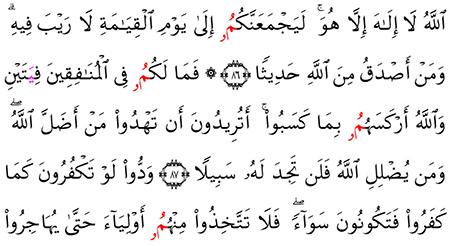 ٱللَّهُ لَا إِلَٰهَ إِلَّا هُوَۚ لَيَجْمَعَنَّكُمُۥ إِلَىٰ يَوْمِ ٱلْقِيَٰمَةِ لَا رَيْبَ فِيهِۗ
وَمَنْ أَصْدَقُ مِنَ ٱللَّهِ حَدِيثًا ٨٦ ۞ فَمَا لَكُمُۥ فِى ٱلْمُنَٰفِقِينَ فِيَتَيْنِ
وَٱللَّهُ أَرْكَسَهُمُۥ بِمَا كَسَبُوٓا۟ۚ أَتُرِيدُونَ أَن تَهْدُوا۟ مَنْ أَضَلَّ ٱللَّهُۖ
وَمَن يُضْلِلِ ٱللَّهُ فَلَن تَجِدَ لَهُۥ سَبِيلًا ٨٧ وَدُّوا۟ لَوْ تَكْفُرُونَ كَمَا
كَفَرُوا۟ فَتَكُونُونَ سَوَآءًۖ فَلَا تَتَّخِذُوا۟ مِنْهُمُۥ أَوْلِيَآءَ حَتَّىٰ يُهَاجِرُوا۟